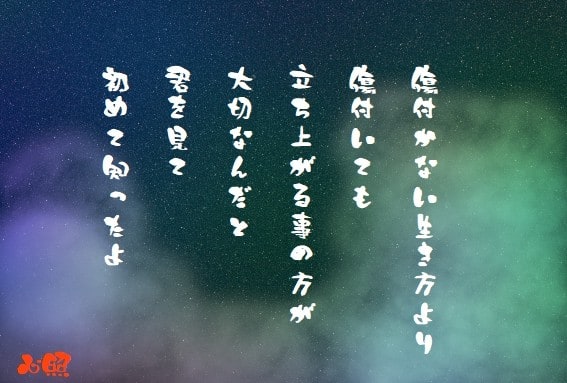 傷付かない生き方より
傷付いても
立ち上がる事の方が
大切なんだと
君を見て
初めて知ったよ